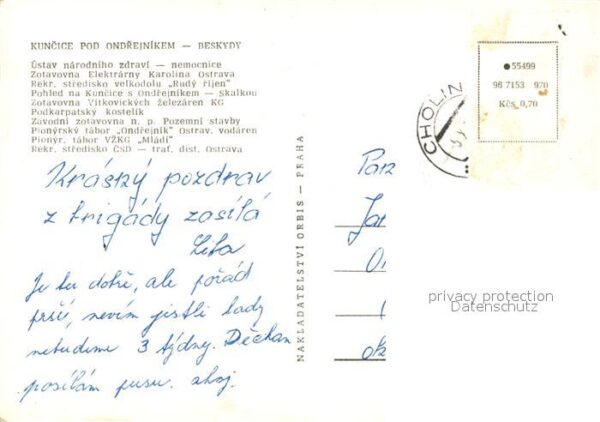 KUNČICE POD ONDŘEJNÍKEM — BESKYDY
Ústav národního zdraví — nemocnice
Zotavovna Elektrárny Karolina Ostrava
Rekr. středisko velkodolu „Rudý říjen"
Pohled na Kunčice s Ondřejníkem — Skalkou
Zotavovna Vítkovických železáren KG
Podkarpatský kostelík
Závodní zotavovna n. p. Pozemní stavby
Pionýrský tábor „Ondřejník" Ostrav. vodáren
Pionýr. tábor VŽKG „Mládí"
Rekr. středisko ČSD — traf. dist. Ostrava
Krásný pozdrav
z brigády zasílá
Je tu dobře, ale pořád
prší, nevím jestli tady
nebudeme 3 týdny. Děčkan
posílám pusu. ahoj.
NAKLADATELSTVÍ ORBIS — PRAHA
CHOLIN
55499
98 7153 970
Kčs 0,70
Par
Jar
privacy protection
Datenschutz